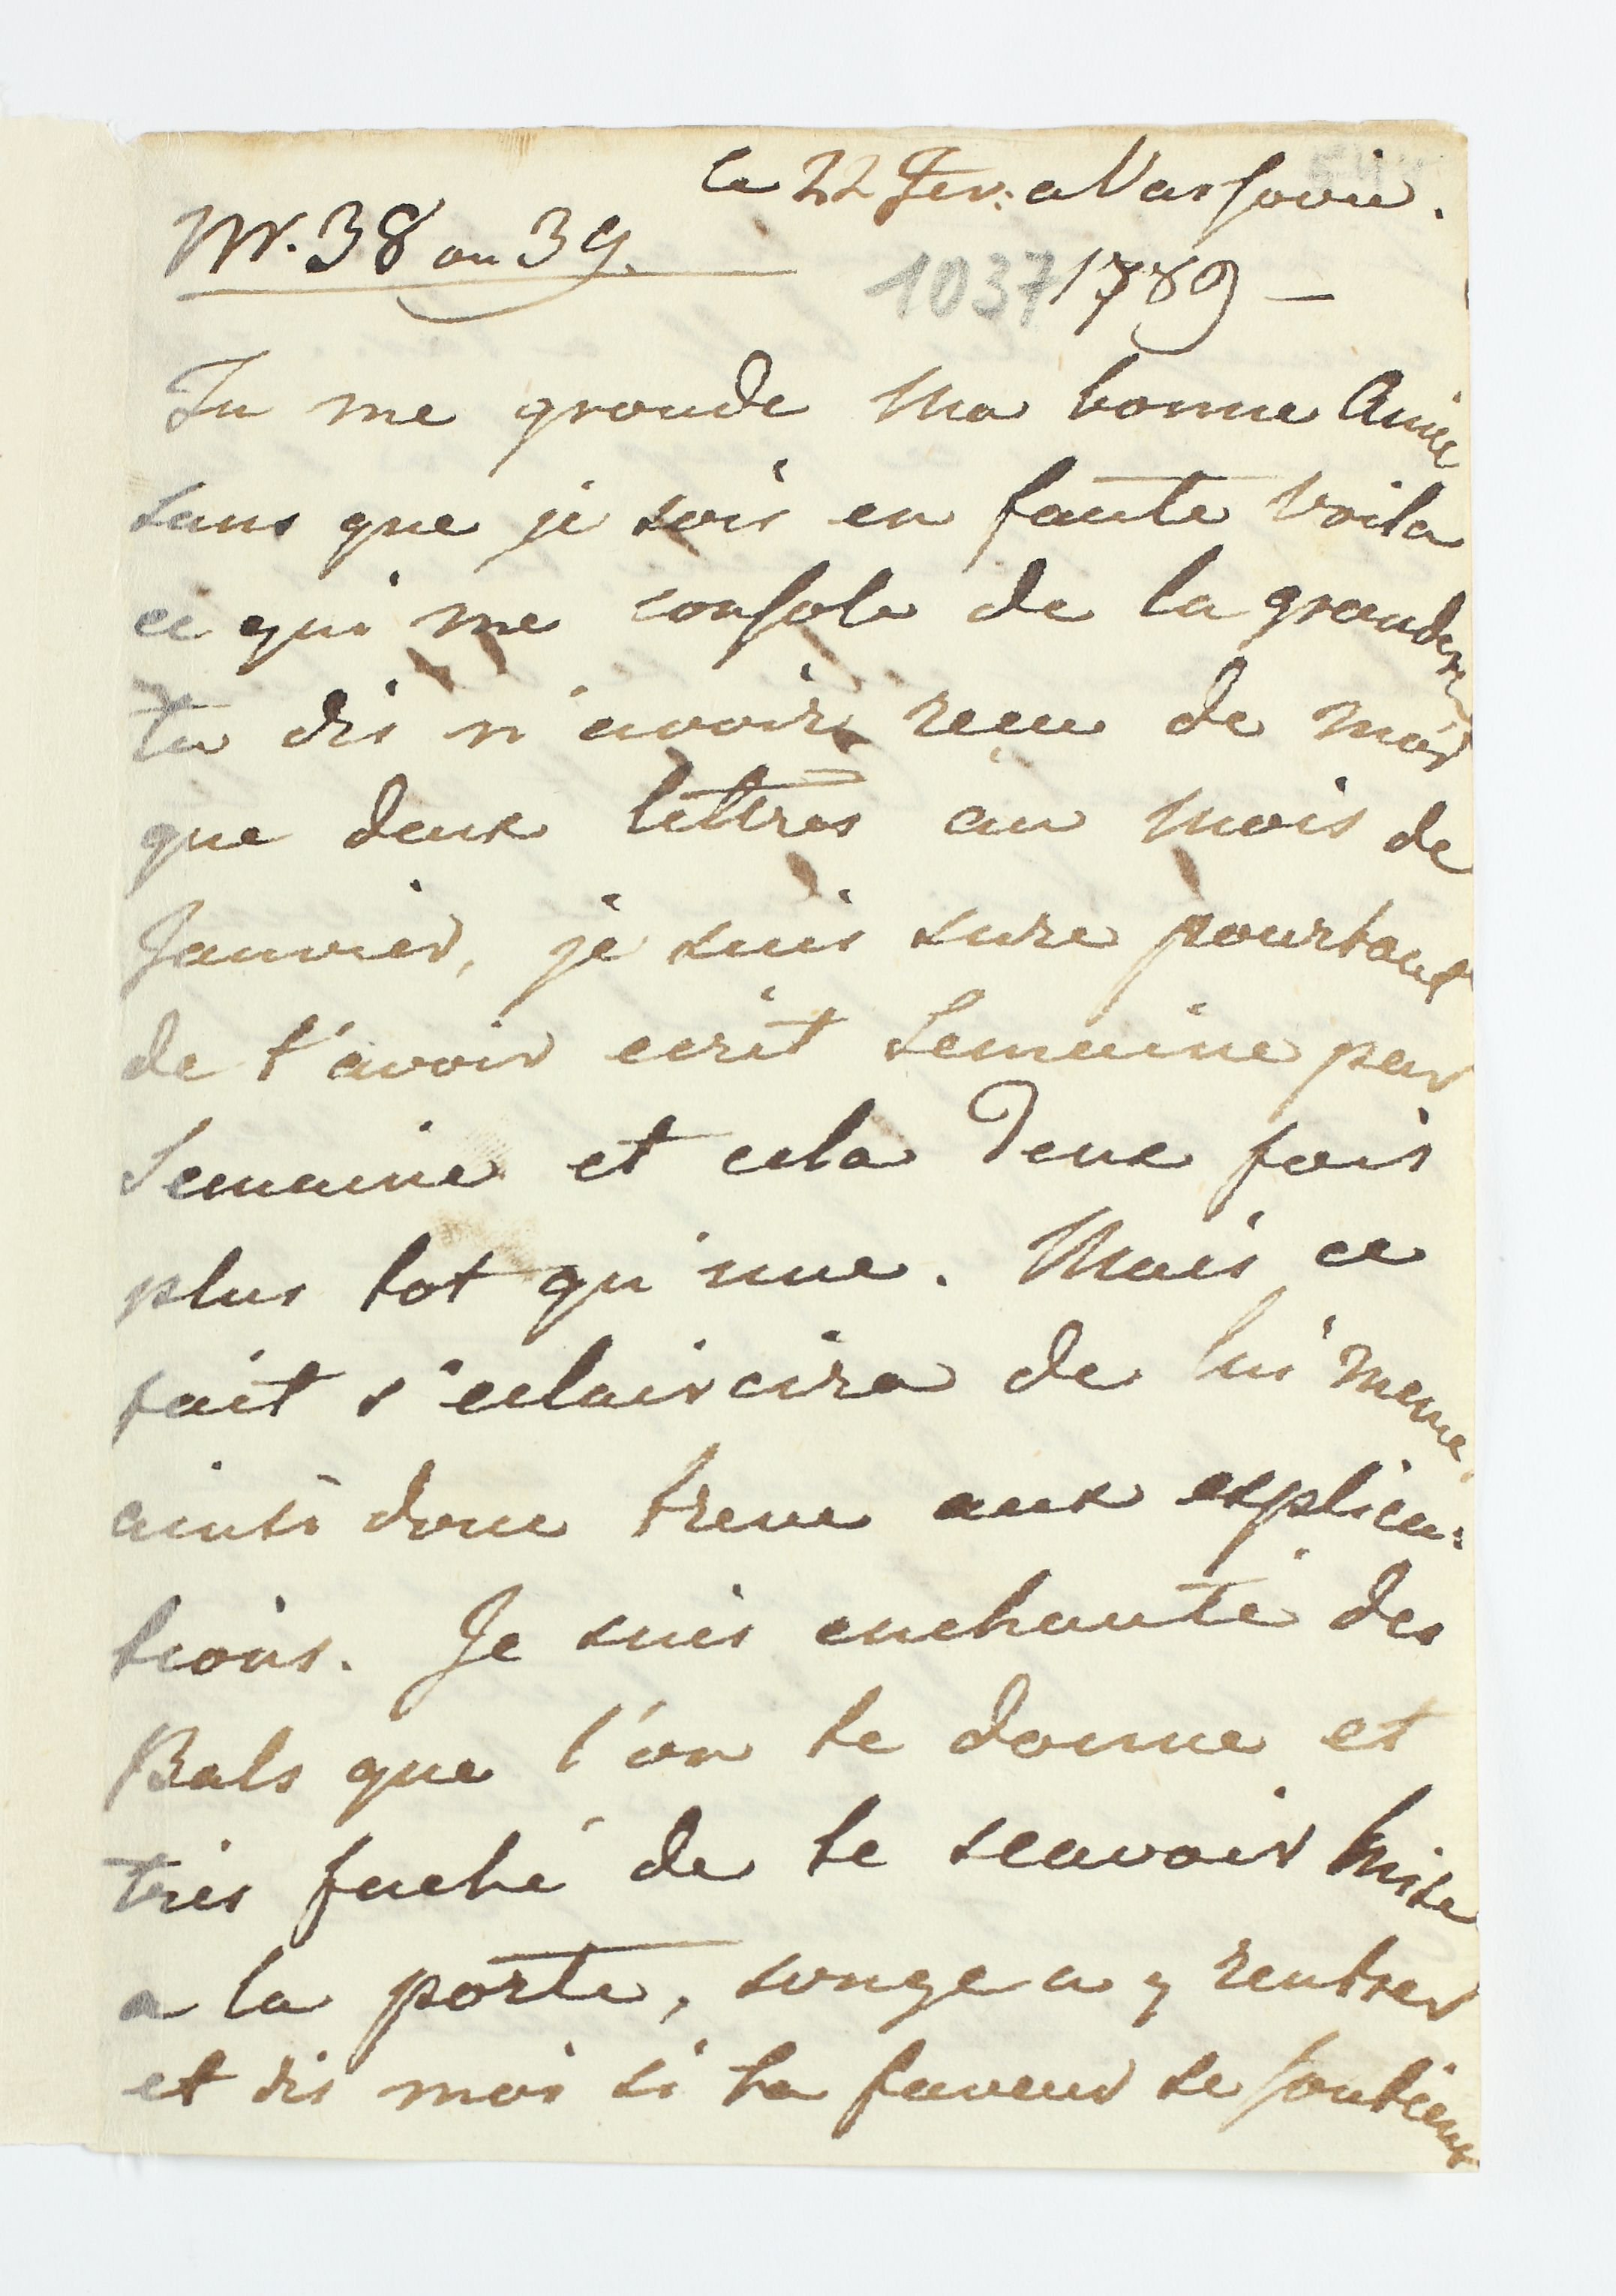 le 22 Fev: a Varsovie.
Nr. 38 ou 39.
1037 1789 —
Tu me gronde Ma bonne Amie
sans que je sois en faute voila
ce qui me console de la gronderie
tu dis n'avoir recu de moi
que deux lettres au mois de
Janvier, je suis sure pourtant
de t'avoir ecrit Semaine par
Semaine et cela deux fois
plus tot qu'une. Mais ce
fait s'eclaircira de lui meme,
ainsi donc treve aux explica:
tions. Je suis enchanté des
Bals que l'on te donne et
très faché de te scavoir mise
a la porte, songe a y rentrer
et dis moi si ta faveur se soutient